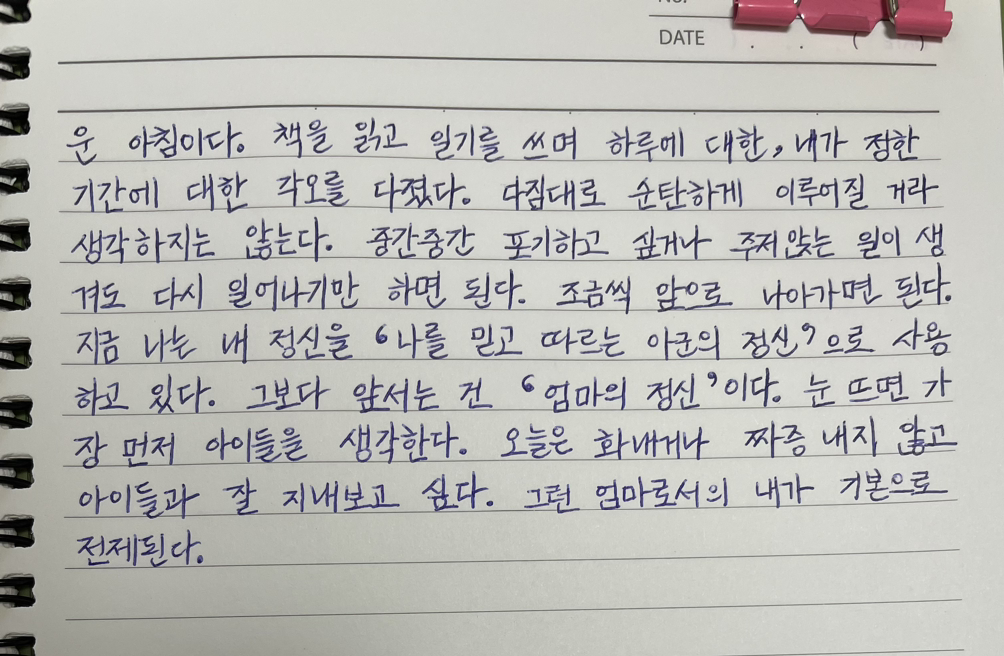 No.
DATE . . ( )
운 아침이다. 책을 읽고 일기를 쓰며 하루에 대한, 내가 정한
기간에 대한 각오를 다졌다. 다짐대로 순탄하게 이루어질 거라
생각하지는 않는다. 중간중간 포기하고 싶거나 주저앉는 일이 생
겨도 다시 일어나기만 하면 된다. 조금씩 앞으로 나아가면 된다.
지금 나는 내 정신을 ‘나를 믿고 따르는 아군의 정신’으로 사용
하고 있다. 그보다 앞서는 건 ‘엄마의 정신’이다. 눈 뜨면 가
장 먼저 아이들을 생각한다. 오늘은 화내거나 짜증 내지 않고
아이들과 잘 지내보고 싶다. 그런 엄마로서의 내가 기본으로
전제된다.